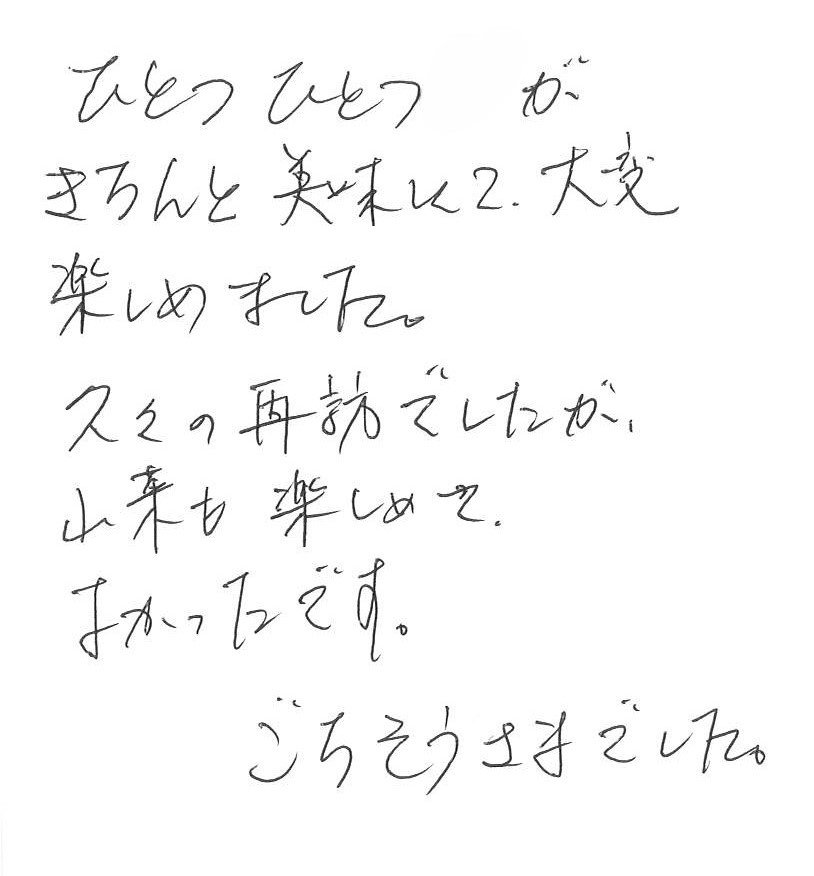 ひとつひとつ が
きちんと美味しくて、大変
楽しめました。
久々の再訪でしたが、
山菜も楽しめて、
よかったです。
ごちそうさまでした。